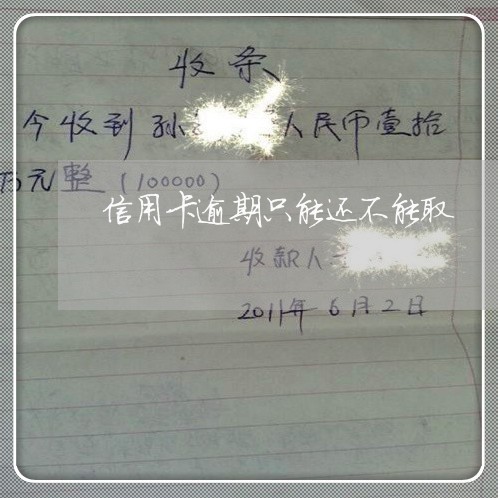 收条
今收到孙 人民币壹拾
万元整(100000)
信用卡逾期只能还不能取
收款人
2011年6月2日